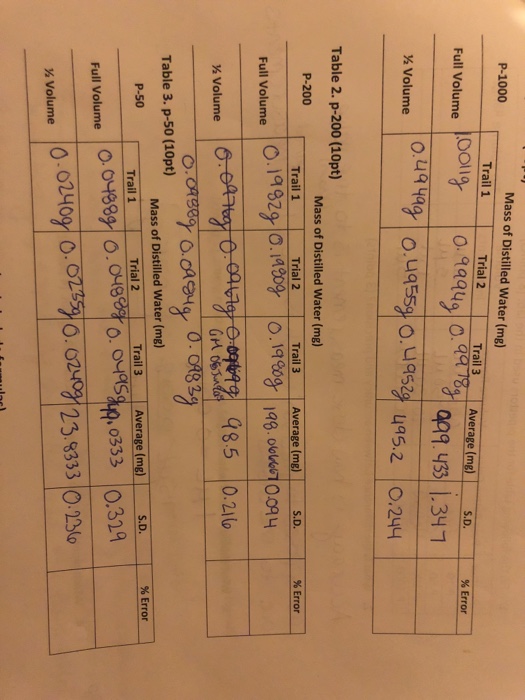 P-1000 Mass of Distilled Water (mg)
Trail 1 Trial 2 Trail 3 Average (mg) S.D. % Error
Full Volume 1.0011g 0.9994g 0.9978g 999.433 1.347
½ Volume 0.4949g 0.4955g 0.4952g 495.2 0.244
Table 2. p-200 (10pt)
P-200 Mass of Distilled Water (mg)
Trail 1 Trial 2 Trail 3 Average (mg) S.D. % Error
Full Volume 0.1982g 0.1980g 0.1980g 198.066667 0.094
½ Volume 98.5 0.216
0.0988g 0.0984g 0.0983g
Table 3. p-50 (10pt)
P-50 Mass of Distilled Water (mg)
Trail 1 Trial 2 Trail 3 Average (mg) S.D. % Error
Full Volume 0.0488g 0.0488g 0.0495g .0333 0.329
½ Volume 0.0240g 0.0235g 0.0240g 23.8333 0.236